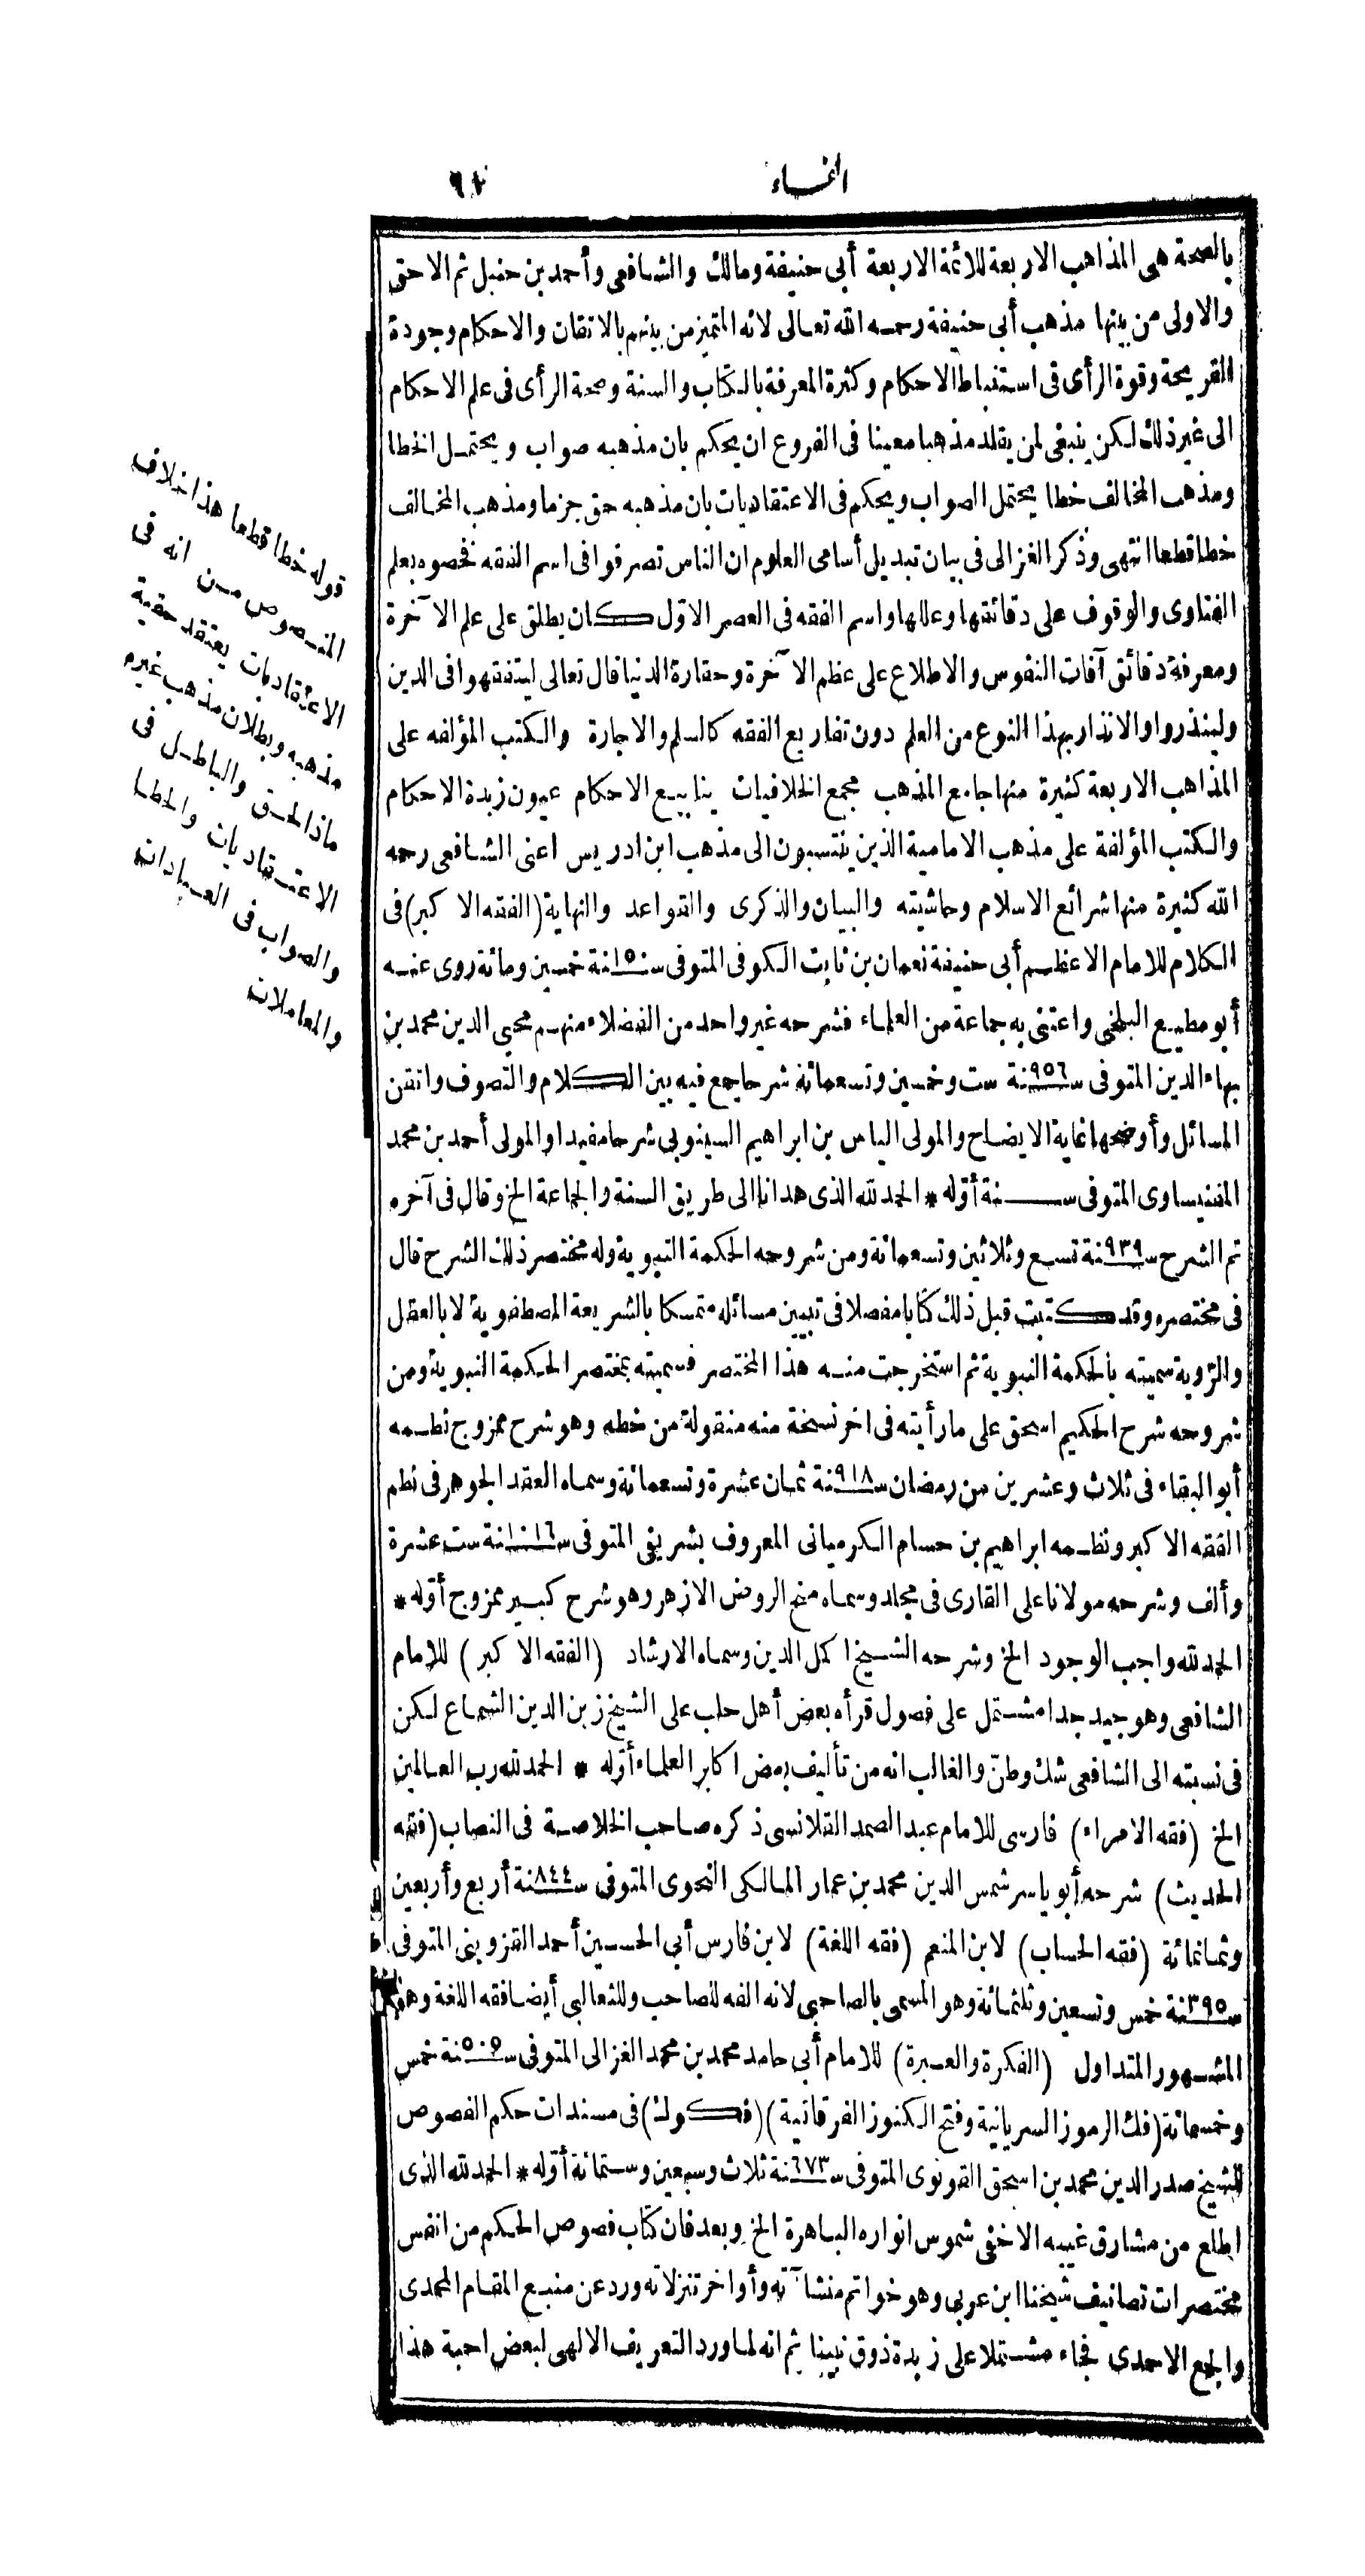 الفاء
بالصحة هى المذاهب الاربعة للائمة الاربعة أبى حنيفة ومالك والشافعى وأحمد بن حنبل ثم الاحق
والاولى من بينها مذهب أبى حنيفة رحمه الله تعالى لانه المتميز من بينهم بالاتقان والاحكام وجودة
القريحة وقوة الرأى فى استنباط الاحكام وكثرة المعرفة بالكتاب والسنة وصحة الرأى فى علم الاحكام
الى غير ذلك لكن ينبغى لمن يقلد مذهبا معينا فى الفروع ان يحكم بان مذهبه صواب ويحتمل الخطا
ومذهب المخالف خطا يحتمل الصواب ويحكم فى الاعتقاديات بان مذهبه حق جزما ومذهب المخالف
خطا قطعا انتهى وذكر الغزالى فى بيان تبديل أسامى العلوم ان الناس تصرفوا فى اسم الفقه فخصوه بعلم
الفتاوى والوقوف على دقائقها وعللها واسم الفقه فى العصر الاول كان يطلق على علم الآخرة
ومعرفة دقائق آفات النفوس والاطلاع على عظم الآخرة وحقارة الدنيا قال تعالى ليتفقهوا فى الدين
ولينذروا والانذار بهذا النوع من العلم دون تفاريع الفقه كالسلم والاجارة والكتب المؤلفه على
المذاهب الاربعة كثيرة منها جامع المذهب مجمع الخلافيات ينابيع الاحكام عيون زبدة الاحكام
والكتب المؤلفة على مذهب الامامية الذين ينتسبون الى مذهب ابن ادريس اعنى الشافعى رحمه
الله كثيرة منها شرائع الاسلام وحاشيته والبيان والذكرى والقواعد والنهاية (الفقه الاكبر) فى
الكلام للامام الاعظم أبى حنيفة نعمان بن ثابت الكوفى المتوفى سنة ١٥٠ خمسين ومائة روى عنه
أبو مطيع البلخى واعتنى به جماعة من العلماء فشرحه غير واحد من الفضلاء منهم محيى الدين محمد بن
بهاء الدين المتوفى سنة ٩٥٦ ست وخمسين وتسعمائة شرحا جمع فيه بين الكلام والتصوف واتقن
المسائل وأوضحها غاية الايضاح والمولى الياس بن ابراهيم السينوبى شرحا مفيدا والمولى أحمد بن محمد
المغنيساوى المتوفى سنة أوله * الحمد لله الذى هدانا الى طريق السنة والجماعة الخ وقال فى آخره
تم الشرح سنة ٩٣٩ تسع وثلاثين وتسعمائة ومن شروحه الحكمة النبوية وله مختصر ذلك الشرح قال
فى مختصره وقد كتبت قبل ذلك كتابا مفصلا فى تبيين مسائله متمسكا بالشريعة المصطفوية لا بالعقل
والروية سميته بالحكمة النبوية ثم استخرجت منه هذا المختصر فسميته بمختصر الحكمة النبوية ومن
شروحه شرح الحكيم اسحق على ما رأيته فى اخر نسخة منه منقولة من خطه وهو شرح ممزوج نظمه
أبو البقاء فى ثلاث وعشرين من رمضان سنة ٩١٨ ثمان عشرة وتسعمائة وسماه العقد الجوهر فى نظم
الفقه الاكبر ونظمه ابراهيم بن حسام الكرميانى المعروف بشريفى المتوفى سنة ١٠١٦ ست عشرة
وألف وشرحه مولانا على القارى فى مجلد وسماه منح الروض الازهر وهو شرح كبير ممزوج أوله *
الحمد لله واجب الوجود الخ وشرحه الشيخ اكمل الدين وسماه الارشاد (الفقه الاكبر) للامام
الشافعى وهو جيد جدا مشتمل على فصول قرأه بعض أهل حلب على الشيخ زين الدين الشماع لكن
فى نسبته الى الشافعى شك وظن والغالب انه من تأليف بعض اكابر العلماء أوله * الحمد لله رب العالمين
الخ (فقه الامراء) فارسى للامام عبد الصمد القلانسى ذكره صاحب الخلاصة فى النصاب (فقه
الحديث) شرحه أبو ياسر شمس الدين محمد بن عمار المالكى النحوى المتوفى سنة ٨٤٤ أربع وأربعين
وثمانمائة (فقه الحساب) لابن المنعم (فقه اللغة) لابن فارس أبى الحسين أحمد القزوينى المتوفى
سنة ٣٩٥ خمس وتسعين وثلثمائة وهو المسمى بالصاحبى لانه الفه للصاحب وللثعالبى أيضا فقه اللغة وهو
المشهور المتداول (الفكرة والعبرة) للامام أبى حامد محمد بن محمد الغزالى المتوفى سنة ٥٠٥ خمس
وخمسمائة (فك الرموز السريانية وفتح الكنوز الفرقانية) (فكوك) فى مسندات حكم الفصوص
للشيخ صدر الدين محمد بن اسحق القونوى المتوفى سنة ٦٧٣ ثلاث وسبعين وستمائة أوله * الحمد لله الذى
اطلع من مشارق غيبه الاخفى شموس انواره الباهرة الخ وبعد فان كتاب فصوص الحكم من انفس
مختصرات تصانيف شيخنا ابن عربى وهو خواتم منشآته وأواخر تنزلاته ورد عن منبع المقام المحمدى
والجمع الاحمدى فجاء مشتملا على زبدة ذوق نبينا ثم انه لما ورد التعريف الالهى لبعض احبة هذا
قوله خطا قطعا هذا خلاف
المنصوص من انه فى
الاعتقاديات يعتقد حقية
مذهبه وبطلان مذهب غيره
ماذا الحق والباطل فى
الاعتقاديات والخطا
والصواب فى العبادات
والمعاملات